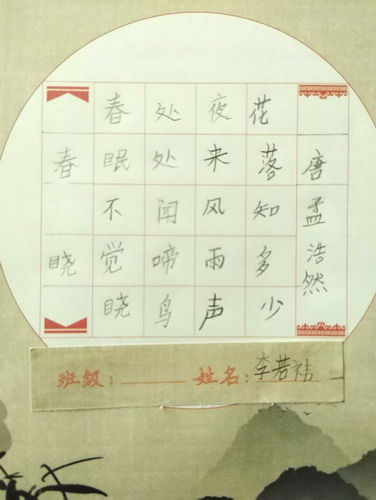 春晓
春眠不觉晓
处处闻啼鸟
夜来风雨声
花落知多少
唐孟浩然
班级：
姓名：李若祎